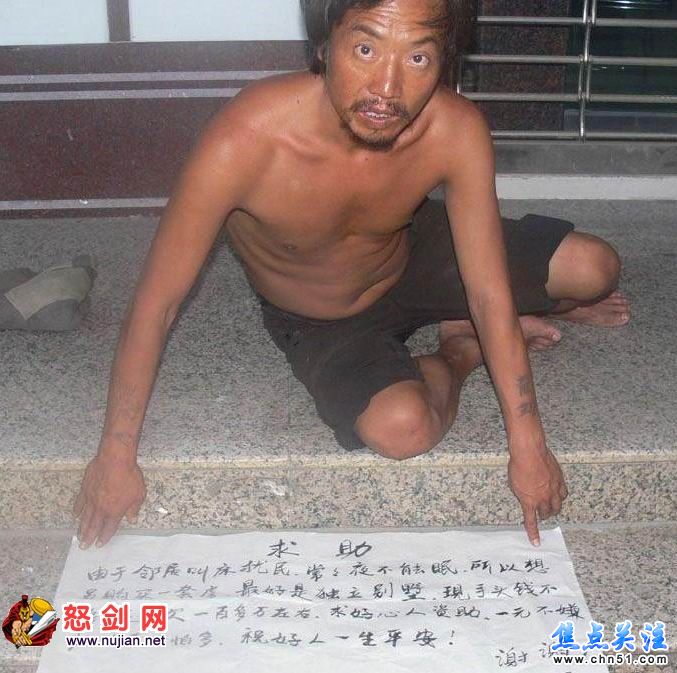 求助
由于邻居叫床扰民,常々夜不能眠,所以想
另购买一套房 最好是独立别墅,现手头钱不
欠一百多万左右,求好心人资助,一元不嫌
怕多,祝好人一生平安!
谢谢
怒剑网
www.nujian.net
焦点关注
www.chn51.com